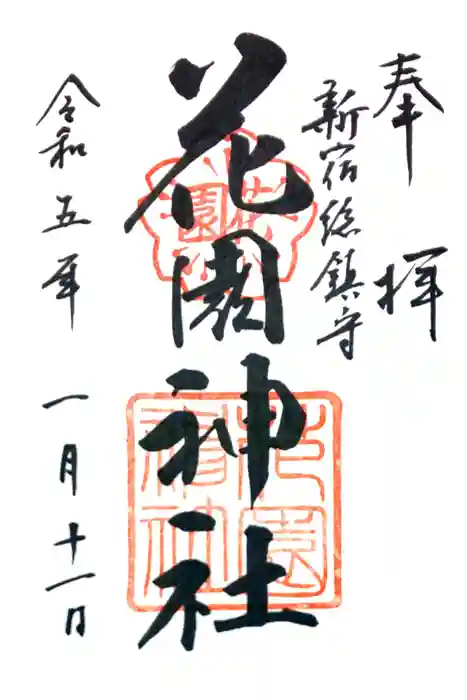 奉拝
新宿総鎮守
花園神社
令和五年 一月十一日
花園
花園神社